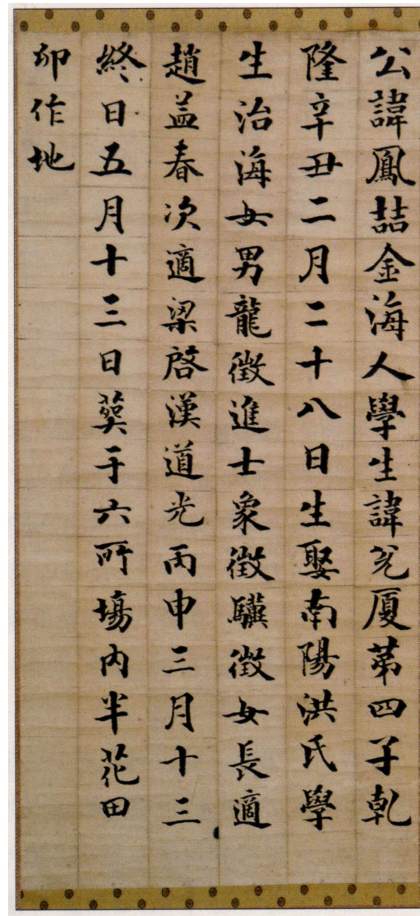 公諱鳳喆金海人學生諱兊厦第四子乹
隆辛丑二月二十八日生娶南陽洪氏學
生治海女男龍徵進士象徵驥徵女長適
趙益春次適梁啓漢道光丙申三月十三
終日五月十三日葬于六所塲內半花田
卯作地